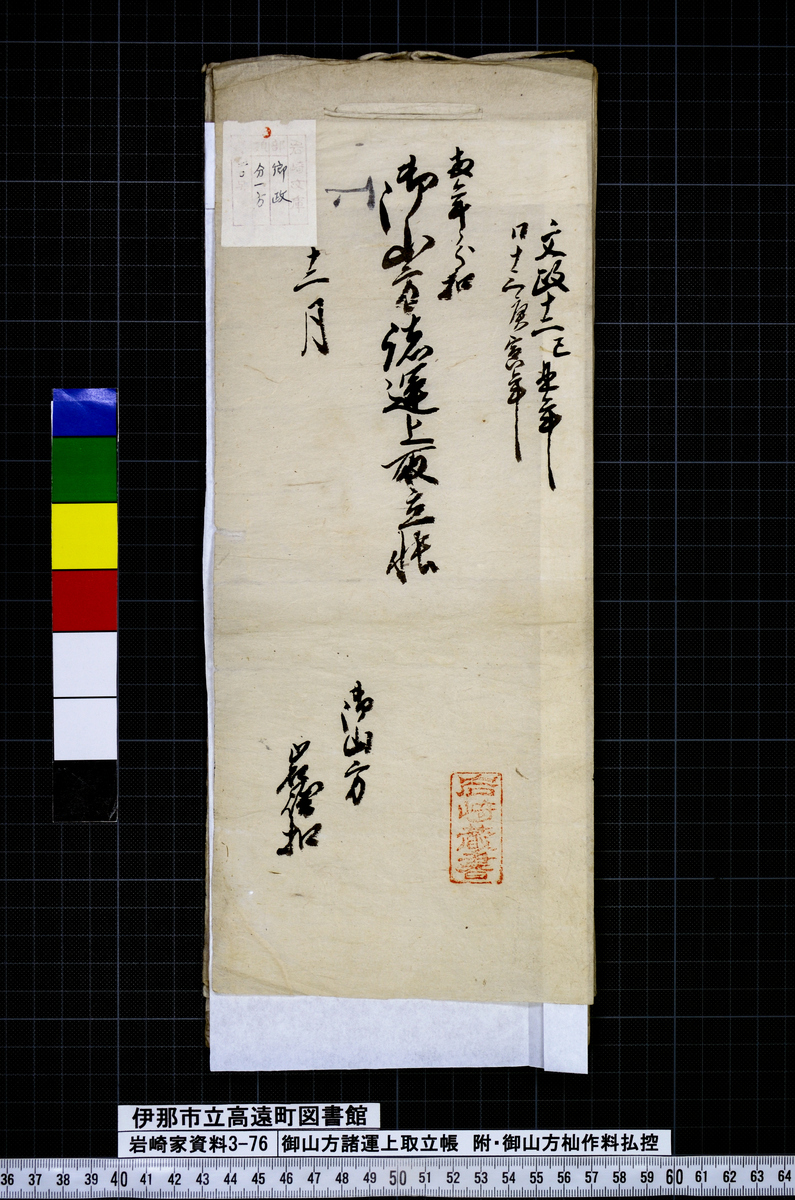 文政十二己丑年
口十三庚寅年
年々分扣
御山方諸運上取立帳
十二月
御山方
岩崎扣
岩崎蔵書
御政
分一方
伊那市立高遠町図書館
岩崎家資料3-76
御山方諸運上取立帳 附・御山方杣作料払控
36 37 38 39 40 41 42 43 44 45 46 47 48 49 50 51 52 53 54 55 56 57 58 59 60 61 62 63 64